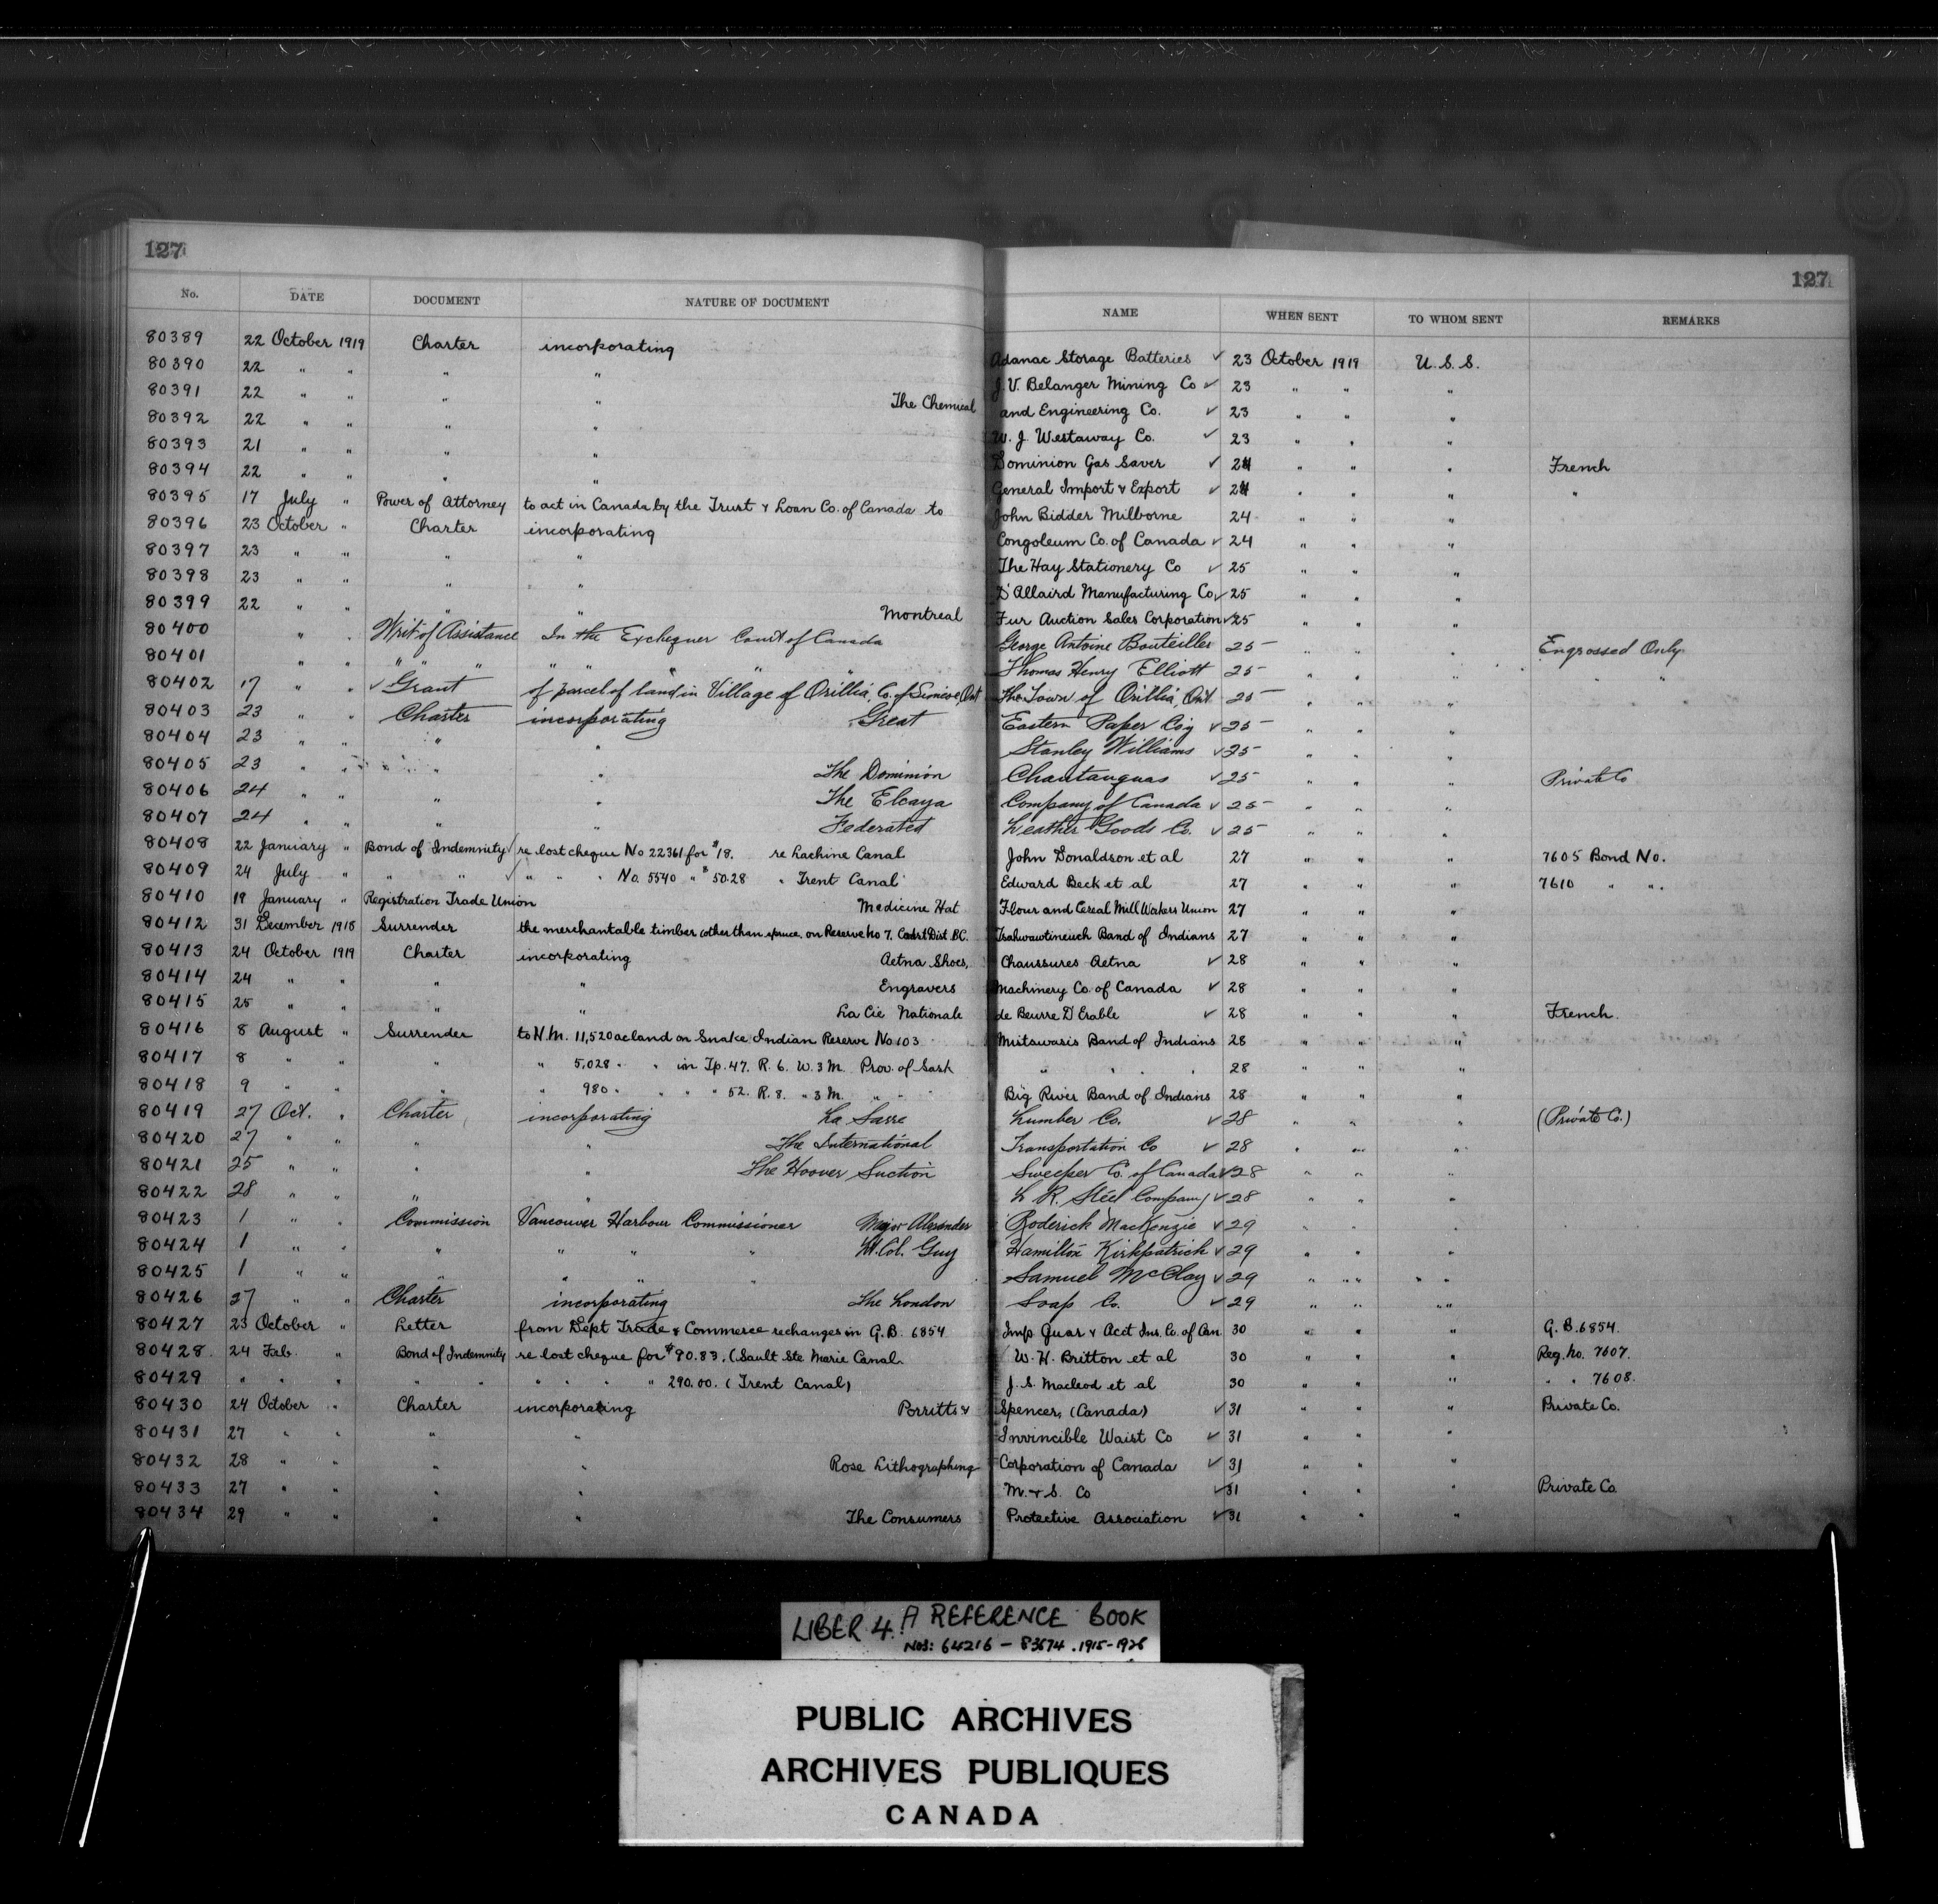 127 127
No. DATE DOCUMENT NATURE OF DOCUMENT NAME WHEN SENT TO WHOM SENT REMARKS
80389 22 October 1919 Charter incorporating Adanac Storage Batteries ✓ 23 October 1919 U.S.S.
80390 22 " " " " J. V. Belanger Mining Co ✓ 23 " " "
80391 22 " " " " The Chemical and Engineering Co. ✓ 23 " " "
80392 22 " " " " W. J. Westaway Co. ✓ 23 " " "
80393 21 " " " " Dominion Gas Saver ✓ 24 " " " French
80394 22 " " " " General Import & Export ✓ 24 " " " "
80395 17 July " Power of Attorney to act in Canada by the Trust & Loan Co. of Canada to John Bidder Milborne 24 " " "
80396 23 October " Charter incorporating Congoleum Co. of Canada ✓ 24 " " "
80397 23 " " " " The Hay Stationery Co ✓ 25 " " "
80398 23 " " " " D'Allaird Manufacturing Co ✓ 25 " " "
80399 22 " " " " Montreal Fur Auction Sales Corporation ✓ 25 " " "
80400 " " Writ of Assistance In the Exchequer Court of Canada George Antoine Bouteiller 25 " " " Engrossed Only
80401 " " " " " " " " " Thomas Henry Elliott 25 " " " " "
80402 17 " " ✓ Grant of parcel of land in Village of Orillia, Co. of Simcoe, Ont The Town of Orillia, Ont 25 " " "
80403 23 " " Charter incorporating Great Eastern Paper Co'y ✓ 25 " " "
80404 23 " " " " Stanley Williams ✓ 25 " " "
80405 23 " " " " The Dominion Chautauquas ✓ 25 " " " Private Co
80406 24 " " " " The Elcaya Company of Canada ✓ 25 " " "
80407 24 " " " " Federated Leather Goods Co. ✓ 25 " " "
80408 22 January " Bond of Indemnity ✓ re lost cheque No 22361 for $18. re Lachine Canal John Donaldson et al 27 " " " 7605 Bond No.
80409 24 July " " " ✓ " " " No. 5540 " $50.28 " Trent Canal Edward Beck et al 27 " " " 7610 " "
80410 19 January " Registration Trade Union Medicine Hat Flour and Cereal Mill Wakers Union 27 " " "
80412 31 December 1918 Surrender the merchantable timber (other than spruce, on Reserve No 7. Coast Dist B.C. Tsahwawtineuch Band of Indians 27 " " "
80413 24 October 1919 Charter incorporating Aetna Shoes, Chaussures Aetna ✓ 28 " " "
80414 24 " " " " Engravers Machinery Co. of Canada ✓ 28 " " "
80415 25 " " " " La Cie Nationale de Beurre D'Erable ✓ 28 " " " French.
80416 8 August " Surrender to H.M. 11,520 ac land on Snake Indian Reserve No 103 Mistawasis Band of Indians 28 " " "
80417 8 " " " " 5,028 " " in Tp. 47. R. 6. W. 3 M. Prov. of Sask " " " " 28 " " "
80418 9 " " " 980 " " " " 52. R. 8. " 3 M. " " " Big River Band of Indians 28 " " "
80419 27 Oct. " Charter incorporating La Sarre Lumber Co. ✓ 28 " " " (Private Co.)
80420 27 " " " " The International Transportation Co ✓ 28 " " "
80421 25 " " " " The Hoover Suction Sweeper Co. of Canada ✓ 28 " " "
80422 28 " " " " L R. Steel Company ✓ 28 " " "
80423 1 " " Commission Vancouver Harbour Commissioner Major Alexander Roderick MacKenzie ✓ 29 " " "
80424 1 " " " " " " Lt. Col. Guy Hamilton Kirkpatrick ✓ 29 " " "
80425 1 " " " " " " Samuel McClay ✓ 29 " " "
80426 27 " " Charter incorporating The London Soap Co. ✓ 29 " " "
80427 23 October " Letter from Dept Trade & Commerce re changes in G.B. 6854 Imp. Guar & Acct Ins. Co. of Can. 30 " " " G.B. 6854.
80428 24 Feb. " Bond of Indemnity re lost cheque for $90.83. (Sault Ste Marie Canal. W. H. Britton et al 30 " " " Reg. No. 7607.
80429 " " " " " " " " " 290.00. (Trent Canal) J. S. Macleod et al 30 " " " " " 7608.
80430 24 October " Charter incorporating Porritts & Spencer, (Canada) ✓ 31 " " " Private Co.
80431 27 " " " " Invincible Waist Co ✓ 31 " " "
80432 28 " " " " Rose Lithographing Corporation of Canada ✓ 31 " " "
80433 27 " " " " M. & S. Co ✓ 31 " " " Private Co.
80434 29 " " " " The Consumers Protective Association ✓ 31 " " "
LIBER 4. A REFERENCE BOOK
NOS: 64216 – 83674. 1915-1926
PUBLIC ARCHIVES
ARCHIVES PUBLIQUES
CANADA